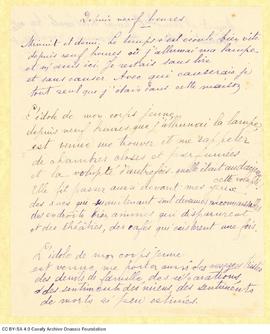 Depuis neuf heures.
Minuit et demi. Le temps s'est écoulé bien vite
depuis neuf heures où j'allumai ma lampe
et m'assis ici. Je restais sans lire
et sans causer. Avec qui causerais-je
tout seul que j'étais dans cette maison
L'idole de mon corps jeune,
depuis neuf heures que j'allumai la lampe,
est venue me trouver et me rappeler
des chambres closes et parfumées
et la volupté d'autrefois quelle était audacieuse
cette volupté,
Elle fit passer aussi devant mes yeux
des rues que maintenant sont devenues inconnaissables
des endroits bien animés qui disparurent,
et des théâtres, des cafés qui existèrent une fois.
L'idole de mon corps jeune
est venue me porter aussi des images tristes
des deuils de famille, des séparations
des sentiments des miens des sentiments
de morts si peu estimés.
CC BY-SA 4.0 Cavafy Archive Onassis Foundation